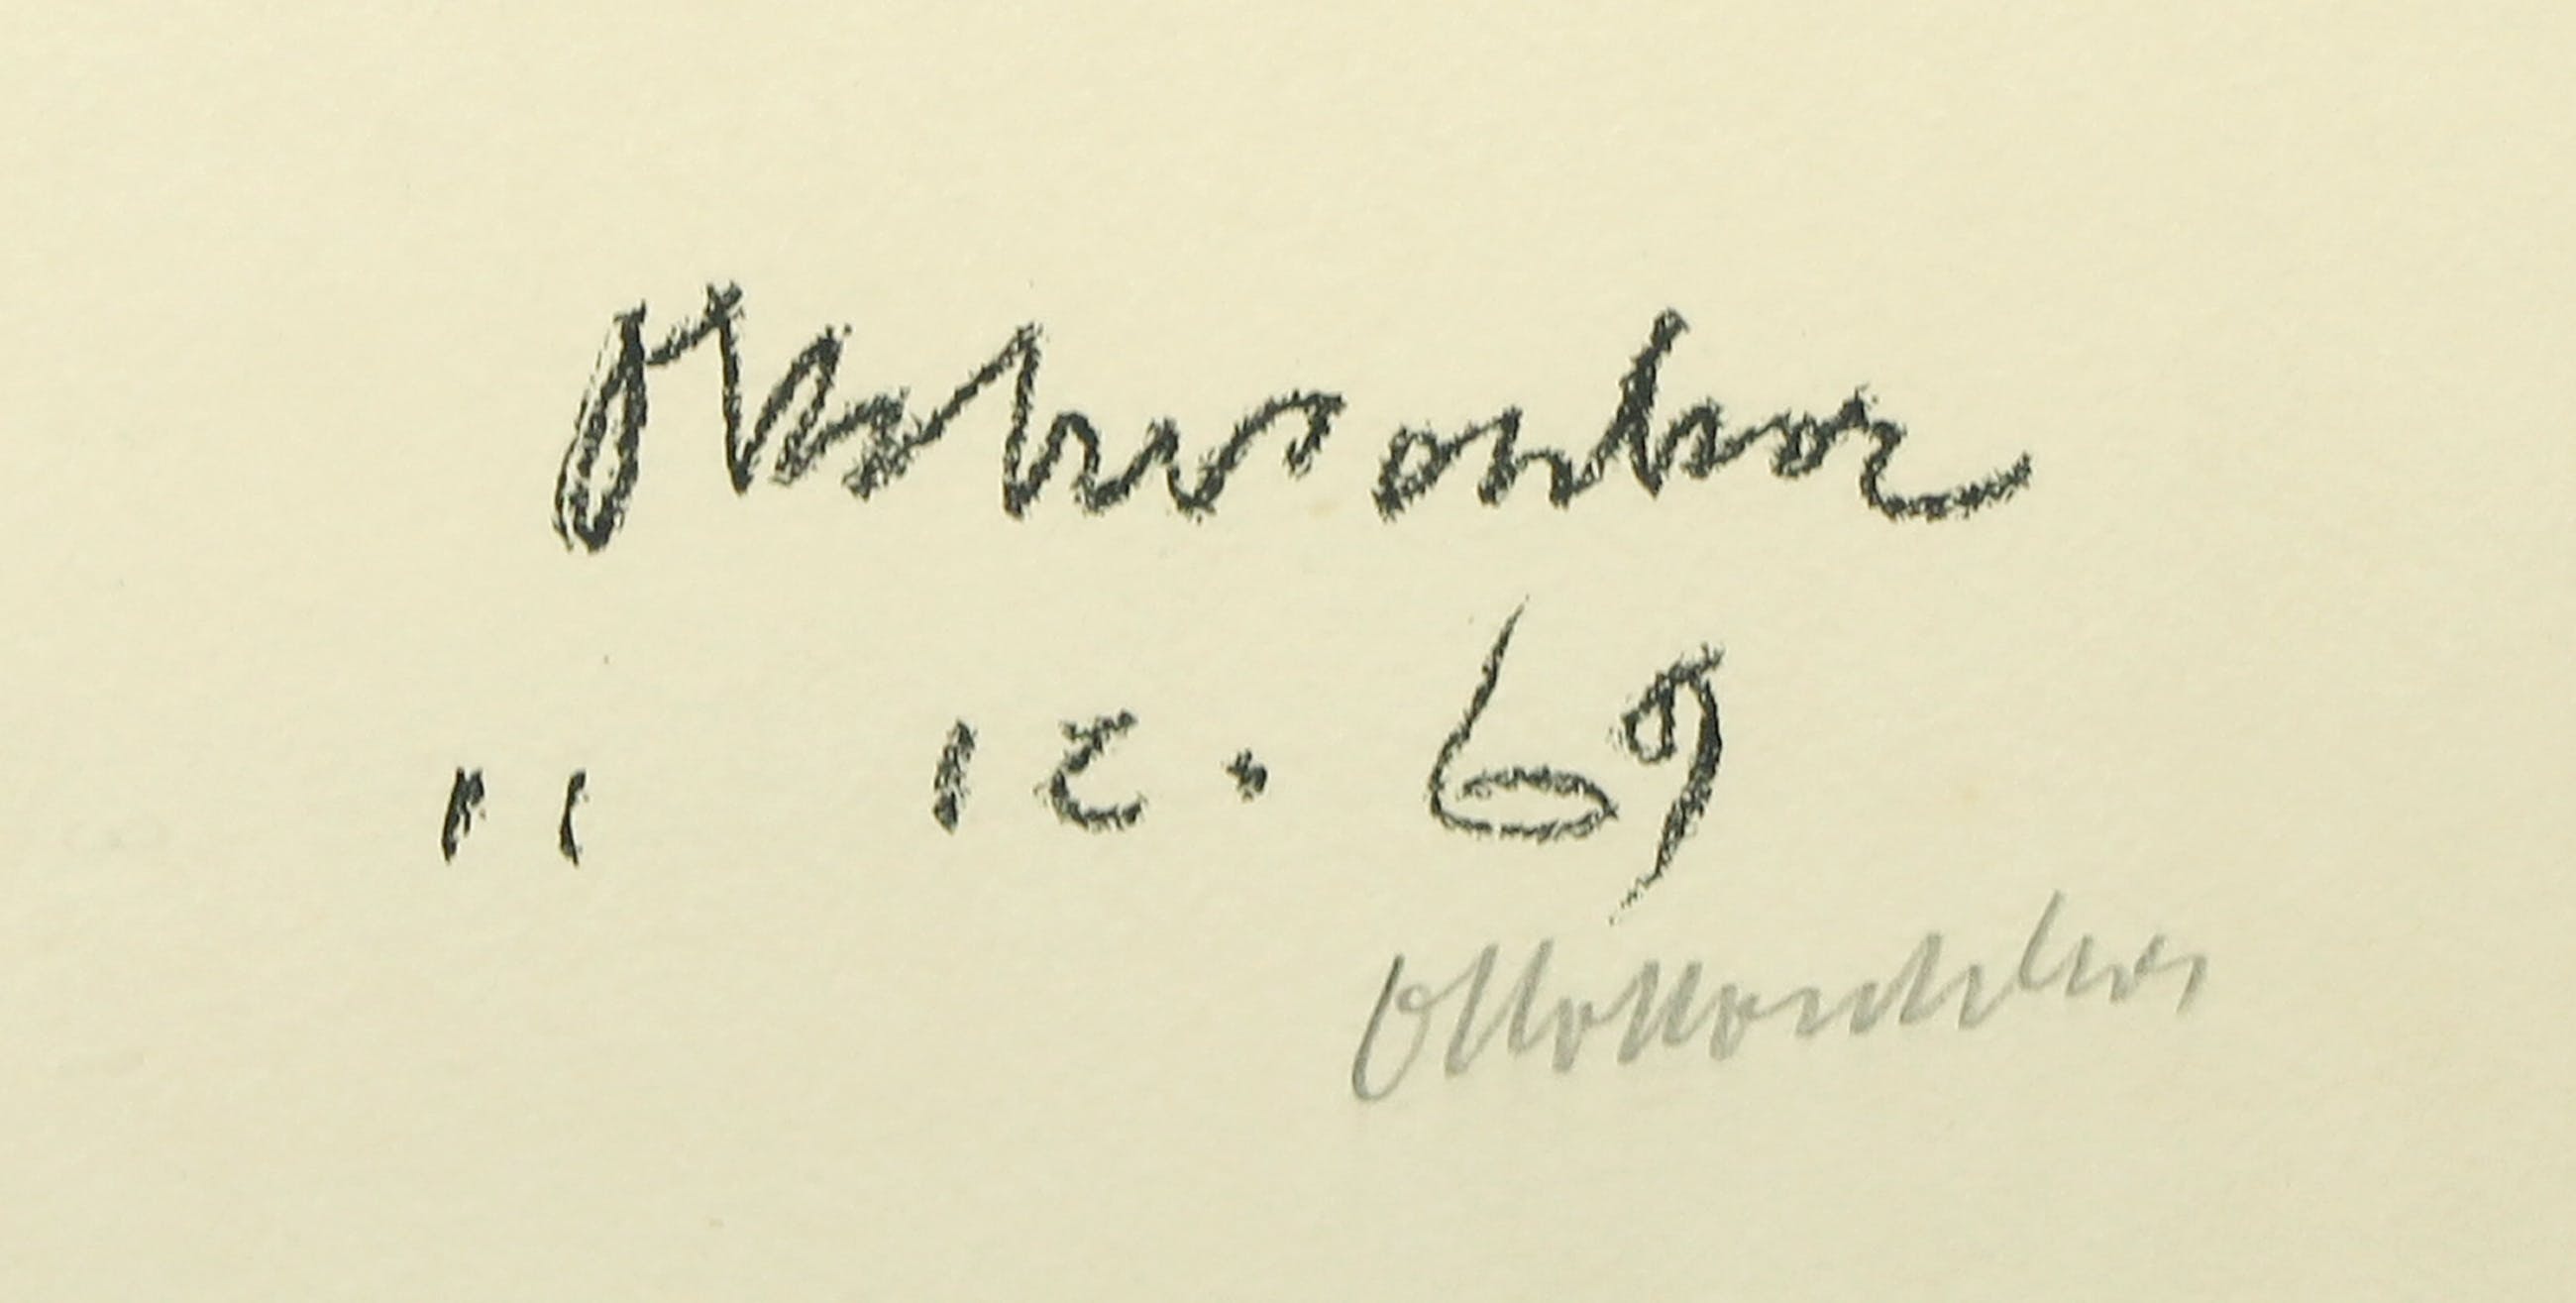 OKokoschka
11 12. 69
OKokoschka